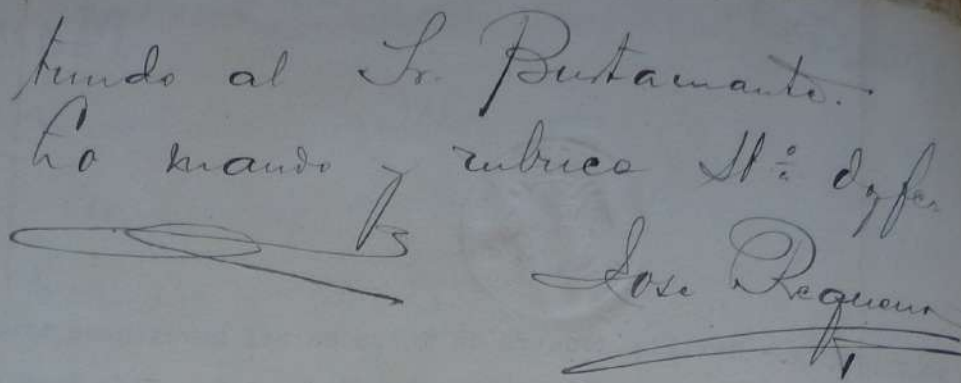 tundo al Sr. Bustamante.
Lo mando y rubrica doy fe
Jose Requena